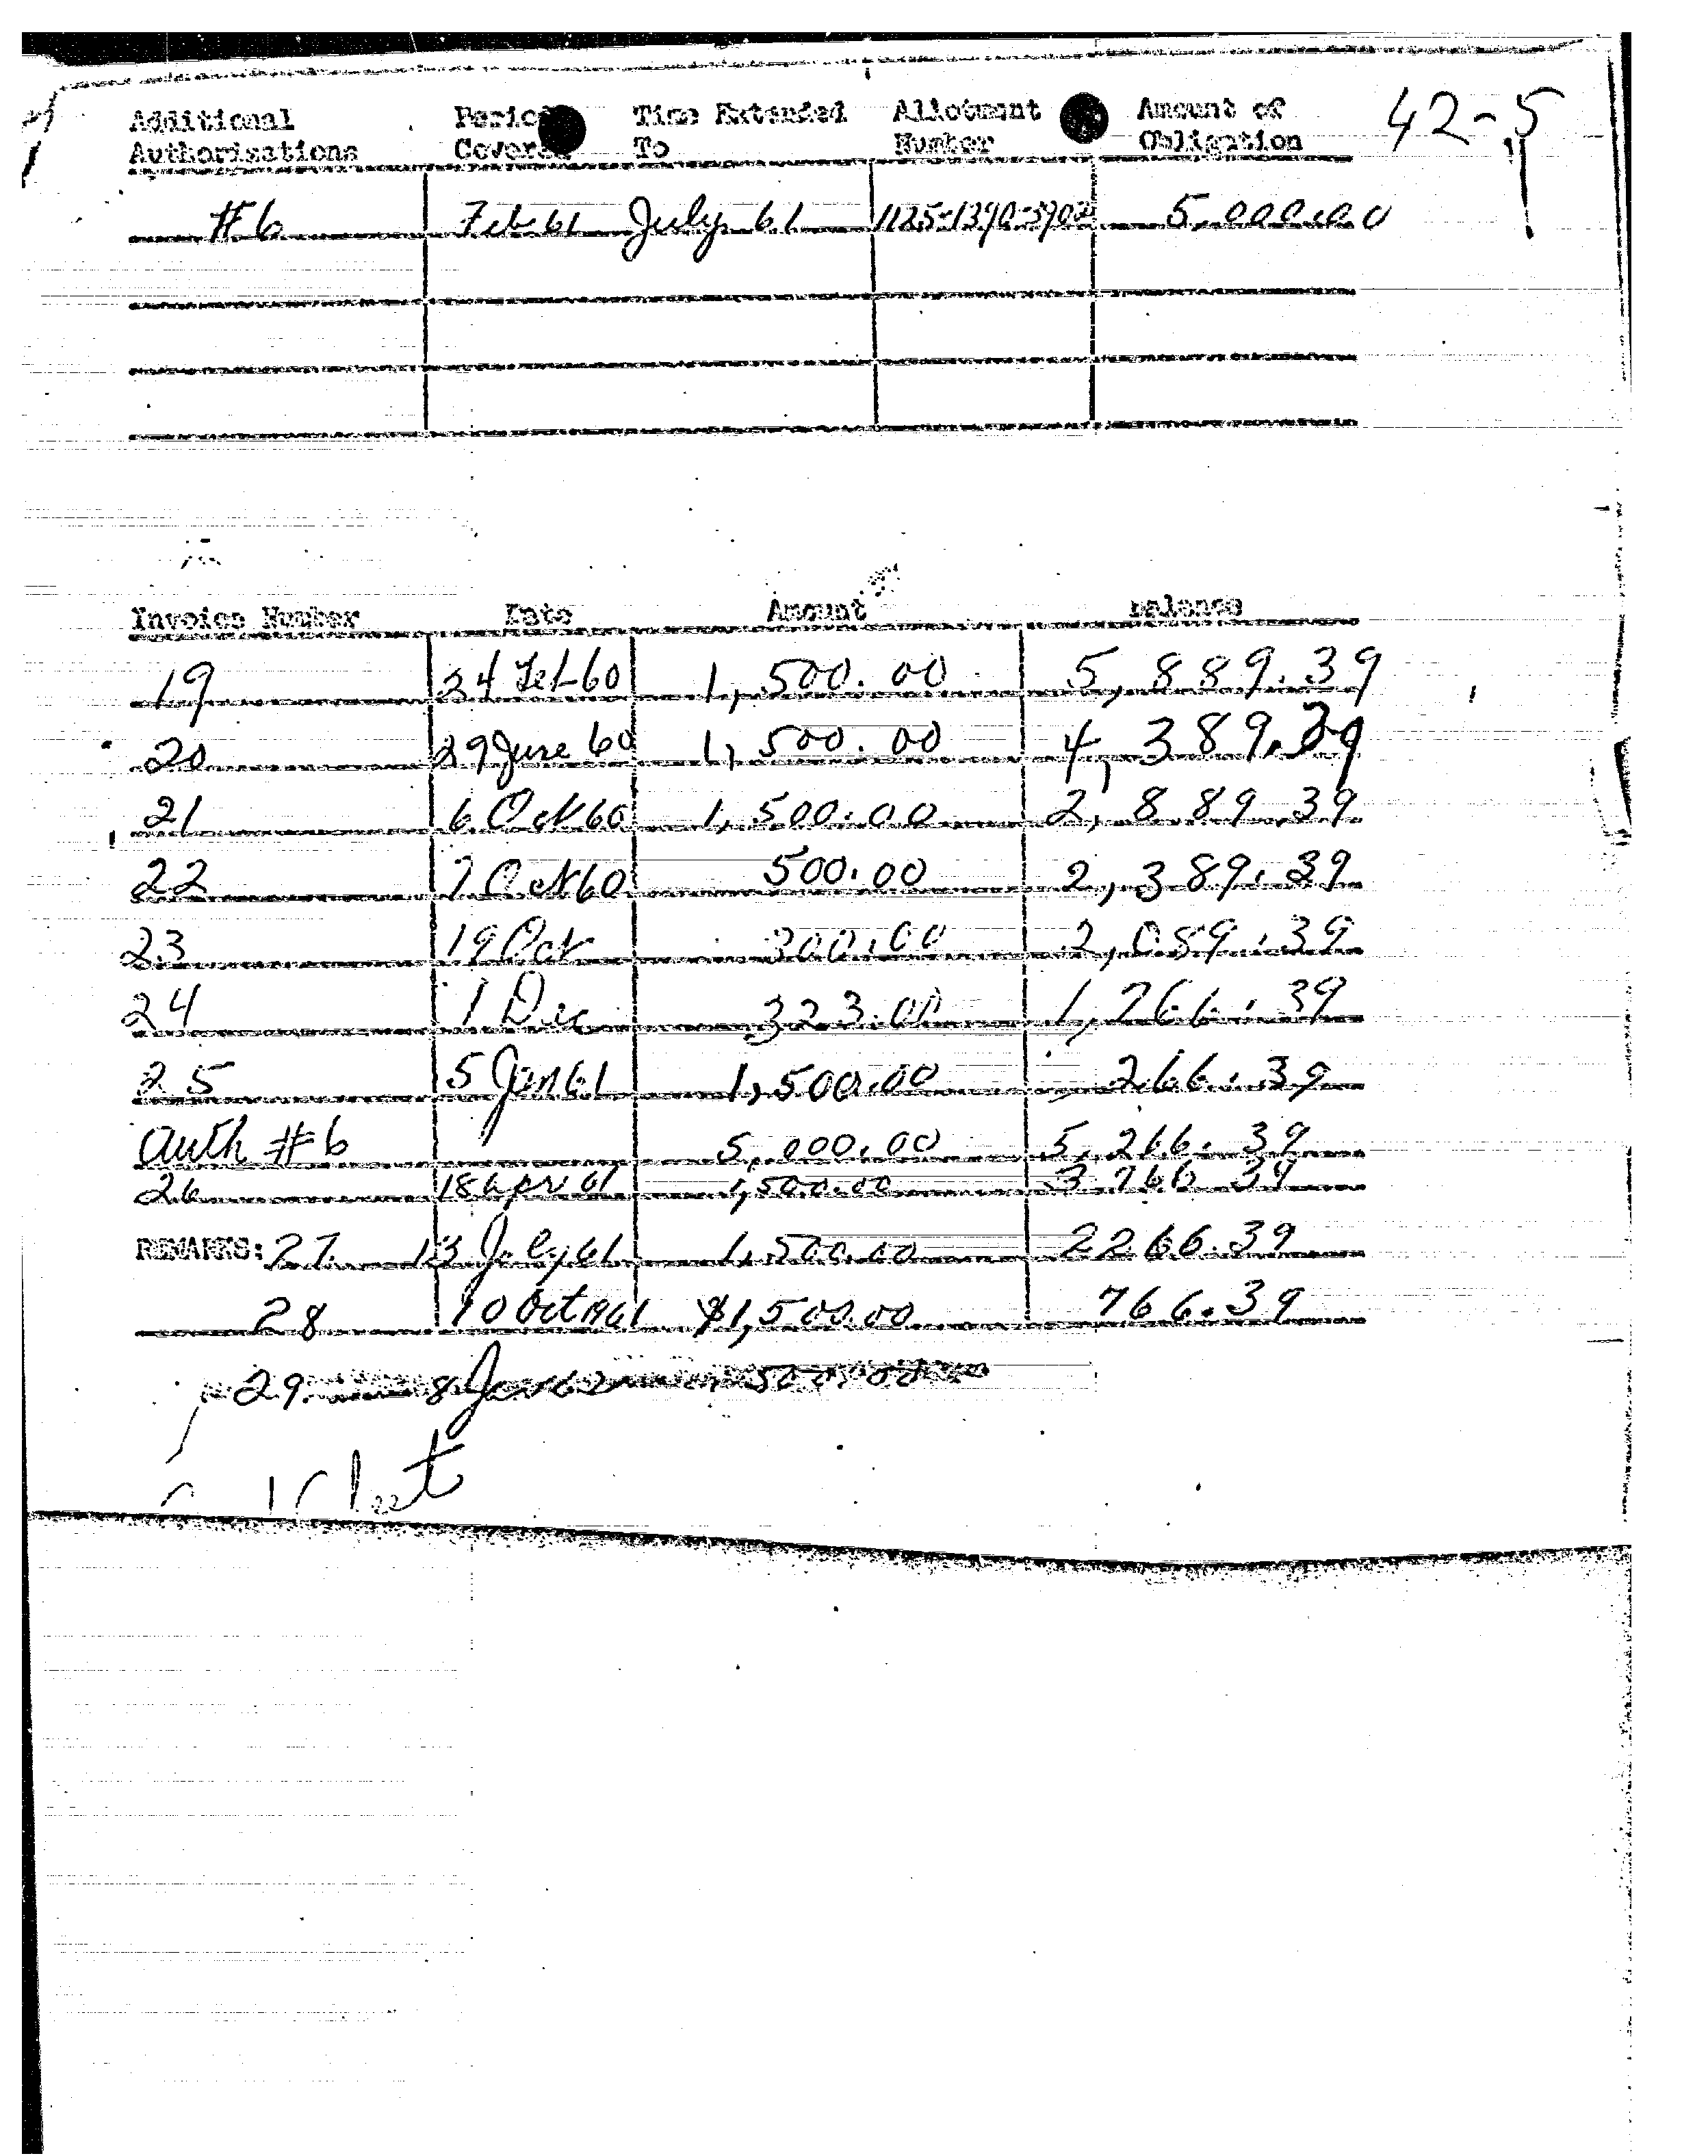 42-5
Additional Period Time Extended Allotment Amount of
Authorizations Covered To Number Obligation
#6 Feb 61 July 61 1125-1390-3902 5,000.00
Invoice Number Date Amount Balance
19 24 Feb 60 1,500.00 5,889.39
20 29 June 60 1,500.00 4,389.39
21 6 Oct 60 1,500.00 2,889.39
22 7 Oct 60 500.00 2,389.39
23 19 Oct 300.00 2,089.39
24 1 Dec 323.00 1,766.39
25 5 Jan 61 1,500.00 266.39
Auth #6 5,000.00 5,266.39
26 18 Apr 61 1,500.00 3 766 39
REMARKS: 27. 13 July 61 1,500.00 2266.39
28 10 Oct 1961 $1,500.00 766.39
29. 8 Jan 62 1,500.00